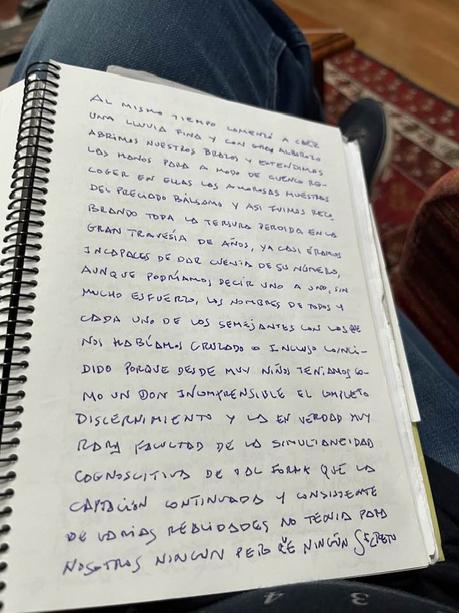 AL MISMO TIEMPO COMENZÓ A CAER
UNA LLUVIA FINA Y CON GRAN ALBOROZO
ABRIMOS NUESTROS BRAZOS Y EXTENDIMOS
LAS MANOS PARA A MODO DE CUENCO RE-
COGER EN ELLAS LAS AMOROSAS MUESTRAS
DEL PRECIADO BÁLSAMO Y ASI FUIMOS RECO
BRANDO TODA LA TERSURA PERDIDA EN LA
GRAN TRAVESÍA DE AÑOS, YA CASI ÉRAMOS
INCAPACES DE DAR CUENTA DE SU NÚMERO,
AUNQUE PODRÍAMOS DECIR UNO A UNO, SIN
MUCHO ESFUERZO, LOS NOMBRES DE TODOS Y
CADA UNO DE LOS SEMEJANTES CON LOS QUE
NOS HABÍAMOS CRUZADO O INCLUSO COINCI-
DIDO PORQUE DESDE MUY NIÑOS TENÍAMOS CO-
MO UN DON INCOMPRENSIBLE EL COMPLETO
DISCERNIMIENTO Y LA EN VERDAD MUY
RARA FACULTAD DE LA SIMULTANEIDAD
COGNOSCITIVA DE TAL FORMA QUE LA
CAPTACIÓN CONTINUADA Y CONSISTENTE
DE VARIAS REALIDADES NO TENIA PARA
NOSOTROS NINGUN PERO QUE NINGÚN SECRETO